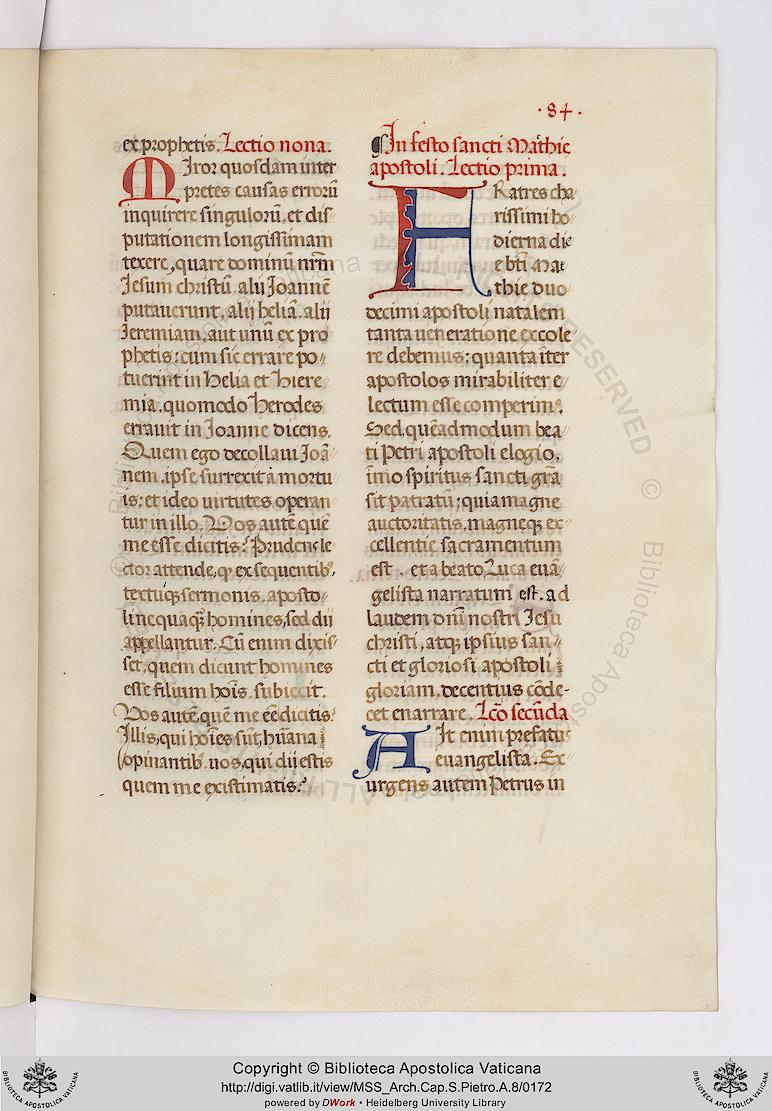 ·84·
ex prophetis. Lectio nona.
MIror quosdam inter
pretes causas errorū
inquirere singulorū, et dis
putationem longissimam
texere, quare dominū nr̄m
Iesum christū alij Ioannē
putauerunt, alij heliā, alij
Ieremiam, aut unū ex pro
phetis: cum sic errare po
tuerint in helia et hiere
mia. quomodo herodes
errauit in Ioanne dicens.
Quem ego decollaui Ioā
nem, ipse surrexit à mortu
is: et ideo uirtutes operan
tur in illo. Vos autē quē
me esse dicitis? Prudens le
ctor attende, ꝙ ex sequentib,
textuq; sermonis, aposto
li nequaq̄ homines, sed dij
appellantur. Cū enim dixis
set, quem dicunt homines
esse filium hoīs. subiecit.
Vos autē, quē me eē dicitis?
Illis, qui hoīes sūt, hūana
opinantib. uos, qui dij estis
quem me existimatis?
In festo sancti Mathie
apostoli. Lectio prima.
FRatres cha
rissimi ho
dierna die
e bti Mat
thie duo
decimi apostoli natalem
tanta ueneratione excole
re debemus; quanta īter
apostolos mirabiliter e
lectum esse comperim9.
Sed, quēadmodum bea
ti Petri apostoli elogio,
īmo spiritus sancti grā
sit patratū; quia magne
auctoritatis, magneq; ex
cellentie sacramentum
est. et a beato Luca euā
gelista narratum est. ad
laudem dnī nostri Iesu
christi, atq; ipsius san
cti et gloriosi apostoli
gloriam, decentius cōde
cet enarrare. Lcō secūda
AIt enim prefatus
euangelista. Ex
urgens autem Petrus in
Copyright © Biblioteca Apostolica Vaticana
http://digi.vatlib.it/view/MSS_Arch.Cap.S.Pietro.A.8/0172
powered by DWork • Heidelberg University Library